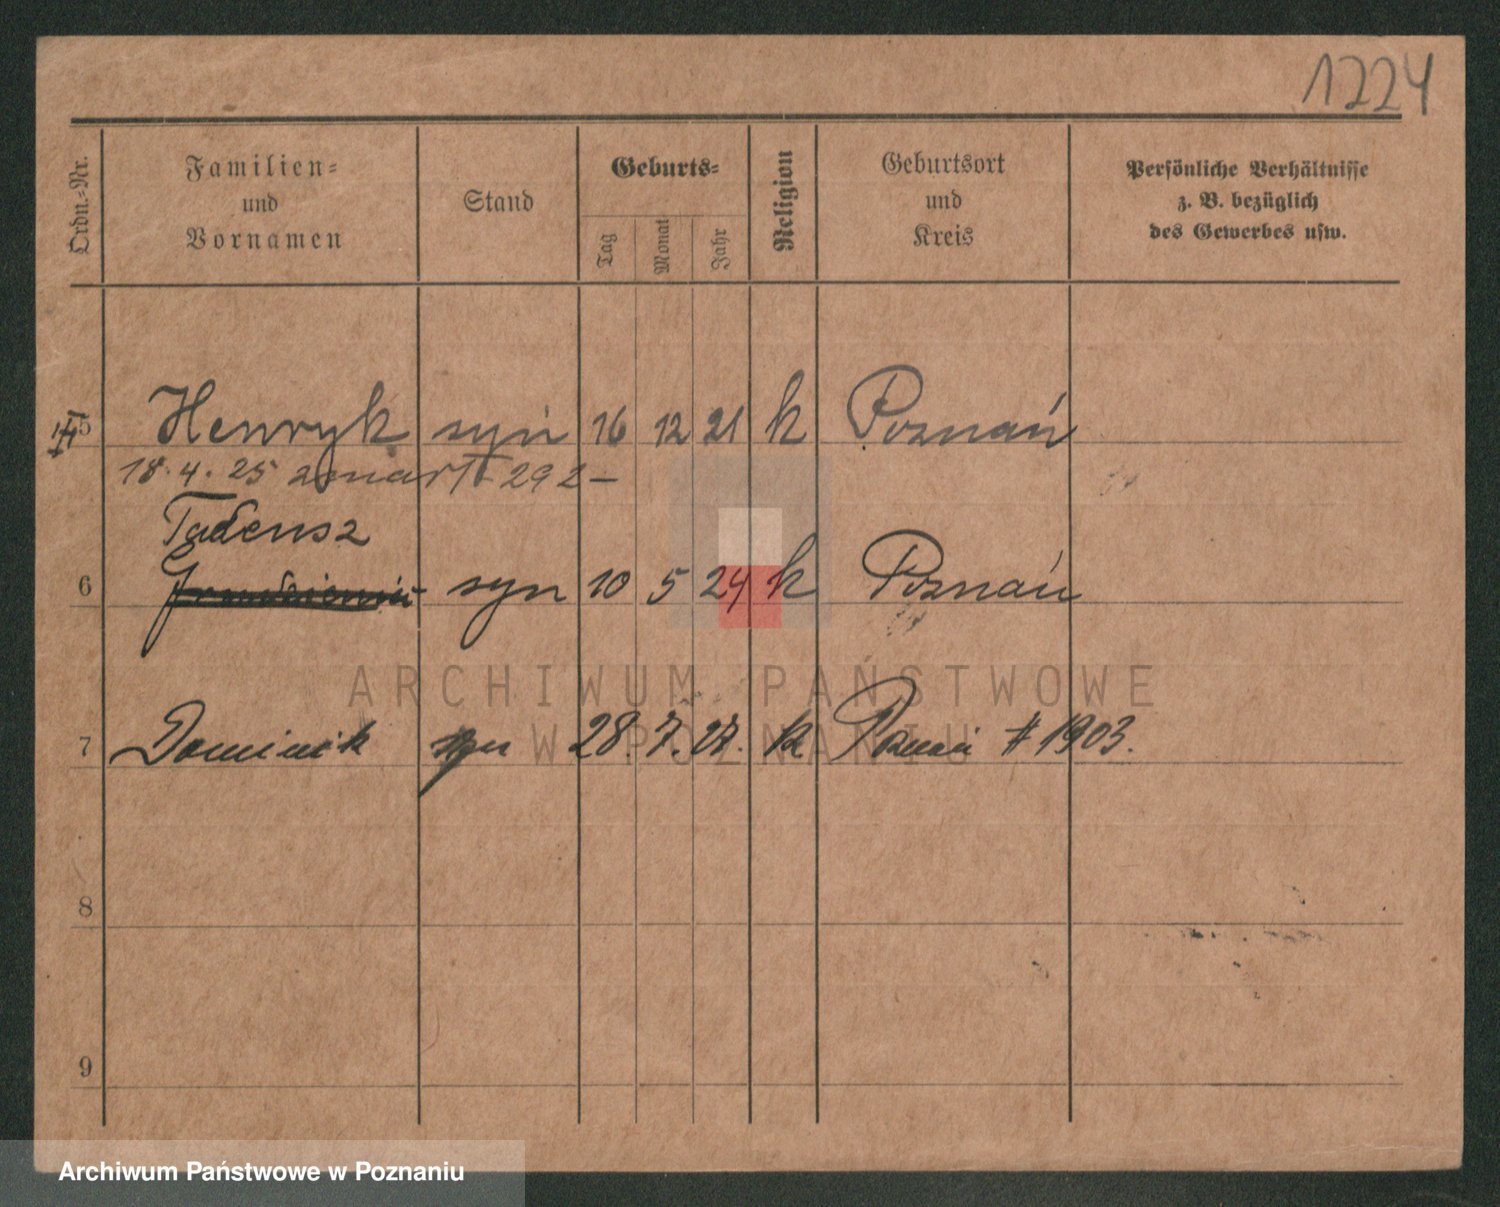 1224
Ordn.-Nr.
Familien-
und
Vornamen
Stand
Geburts-
Tag
Monat
Jahr
Religion
Geburtsort
und
Kreis
Persönliche Verhältnisse
z. B. bezüglich
des Gewerbes usw.
5 Henryk syn 16 12 21 k Poznań
18.4.25 zmarł 292 —
Tadeusz
6 syn 10 5 24 k Poznań
ARCHIWUM PAŃSTWOWE
W POZNANIU
7 Dominik syn 28 7. 27. k Poznań # 1903.
8
9
Archiwum Państwowe w Poznaniu